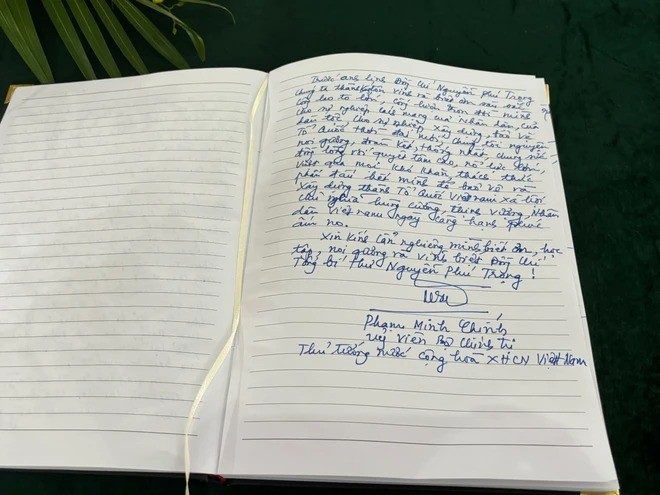 Trước anh linh Đồng chí Nguyễn Phú Trọng
Chúng ta thành kính tôn vinh và biết ơn sâu sắc
công lao to lớn, cống hiến trọn đời mình
cho sự nghiệp cách mạng của Nhân dân, của
dân tộc, cho sự nghiệp xây dựng, bảo vệ
Tổ Quốc thời đại mới, chúng tôi nguyện
noi gương, đoàn kết, thống nhất, chung sức,
đồng lòng với quyết tâm cao, nỗ lực lớn,
Vượt qua mọi khó khăn, thách thức
phấn đấu hết mình để bảo vệ và
Xây dựng thành Tổ Quốc Việt Nam xã hội
chủ nghĩa hùng cường, thịnh vượng, Nhân
dân Việt nam ngày càng hạnh phúc
ấm no.
Xin kính cẩn nghiêng mình biết ơn, học
tập, noi gương và vĩnh biệt Đồng chí
Tổng bí thư Nguyễn Phú Trọng!
Phạm Minh Chính
Uỷ viên Bộ Chính trị
Thủ tướng nước cộng hoà XHCN Việt Nam